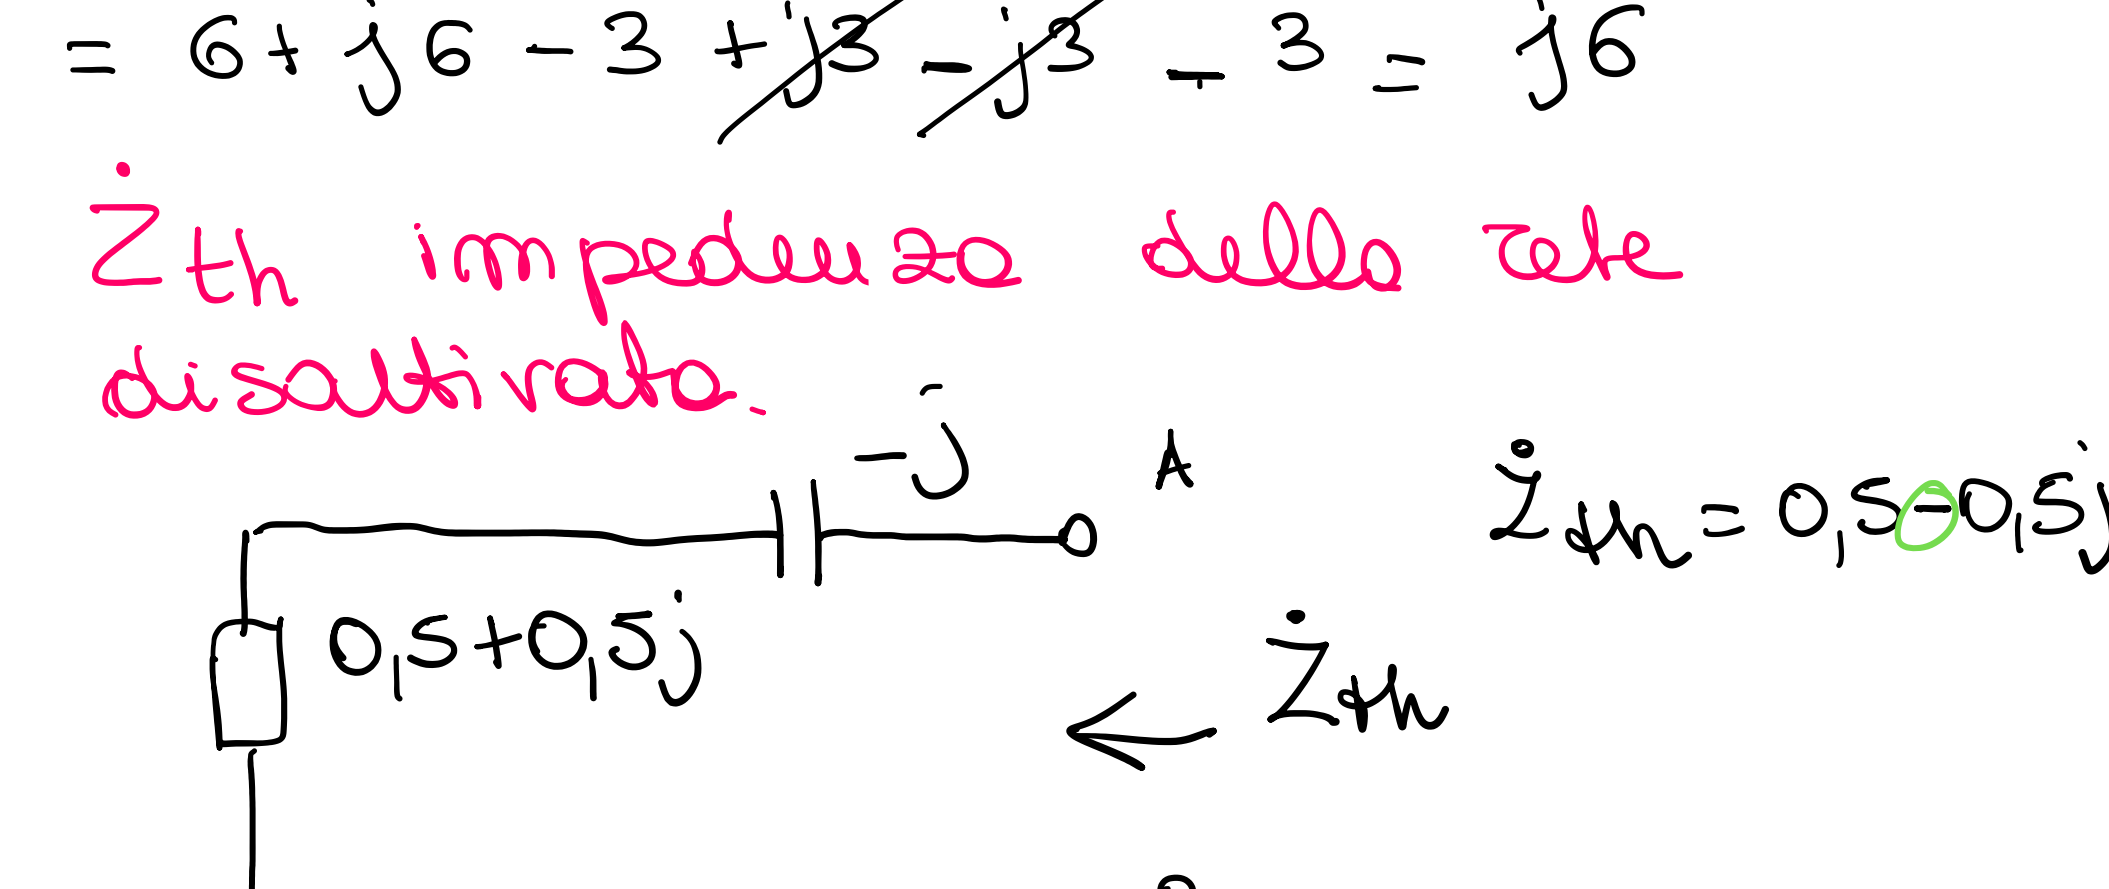 = 6 + j6 - 3 + j3 - j3 - 3 = j6
Żth impedenza della rete
disattivata.
-j A
Żth = 0,5 - 0,5j
0,5 + 0,5j
Żth